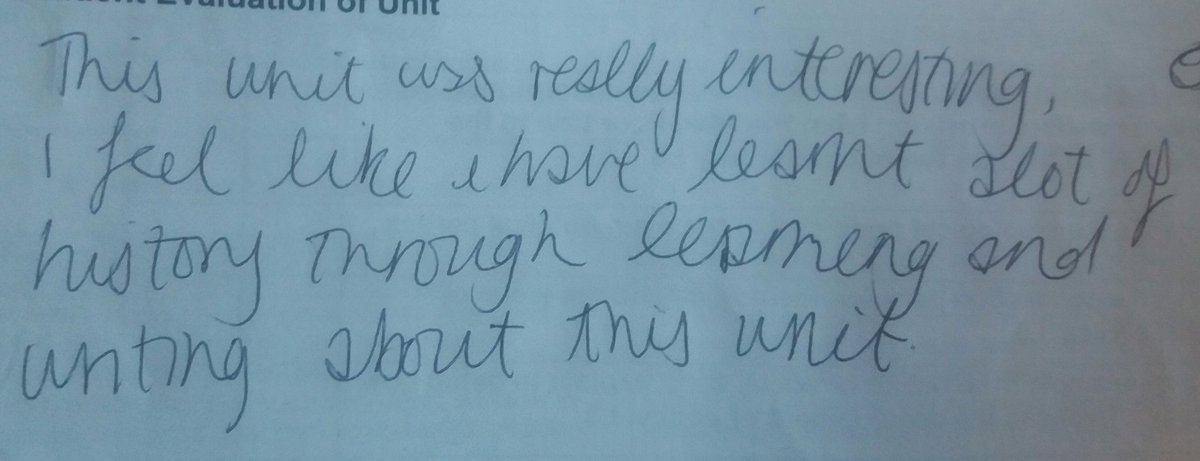 Evaluation of Unit
This unit was really interesting,
I feel like i have learnt alot of
history through learning and
writing about this unit.